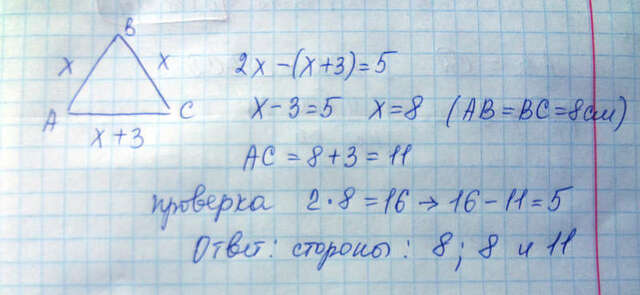 B
x x
A C
x + 3
2x - (x + 3) = 5
x - 3 = 5 x = 8 (AB = BC = 8 см)
AC = 8 + 3 = 11
проверка 2 · 8 = 16 → 16 - 11 = 5
Ответ: стороны: 8; 8 и 11